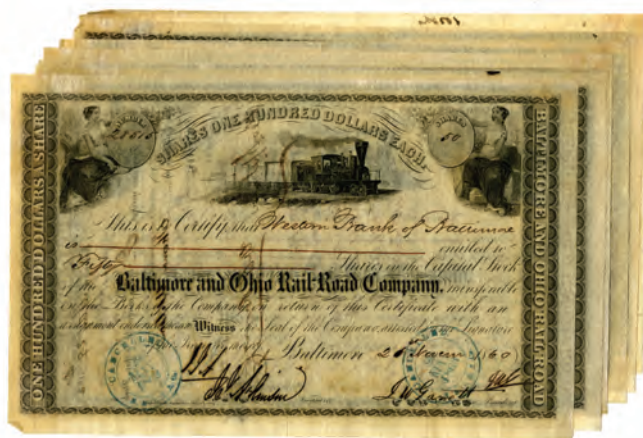 SHARES ONE HUNDRED DOLLARS EACH.
SHARES
50
ONE HUNDRED DOLLARS A SHARE
BALTIMORE AND OHIO RAIL-ROAD
This is to Certify, that Western Bank of Baltimore
is entitled to
Fifty Shares in the Capital Stock
of the Baltimore and Ohio Rail-Road Company, transferable
on the Books of the Company, on return of this Certificate with an
Witness the Seal of the Company attested by the Signature
Baltimore 1860